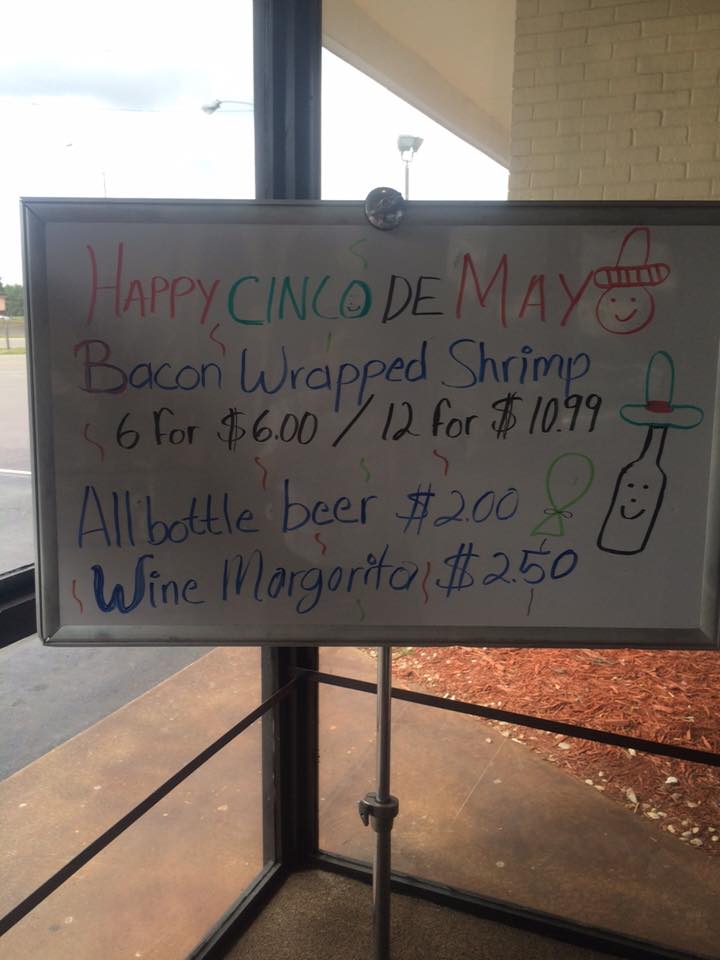 HAPPY CINCO DE MAYO
Bacon Wrapped Shrimp
6 for $6.00 / 12 for $10.99
All bottle beer $2.00
Wine Morgorita $2.50